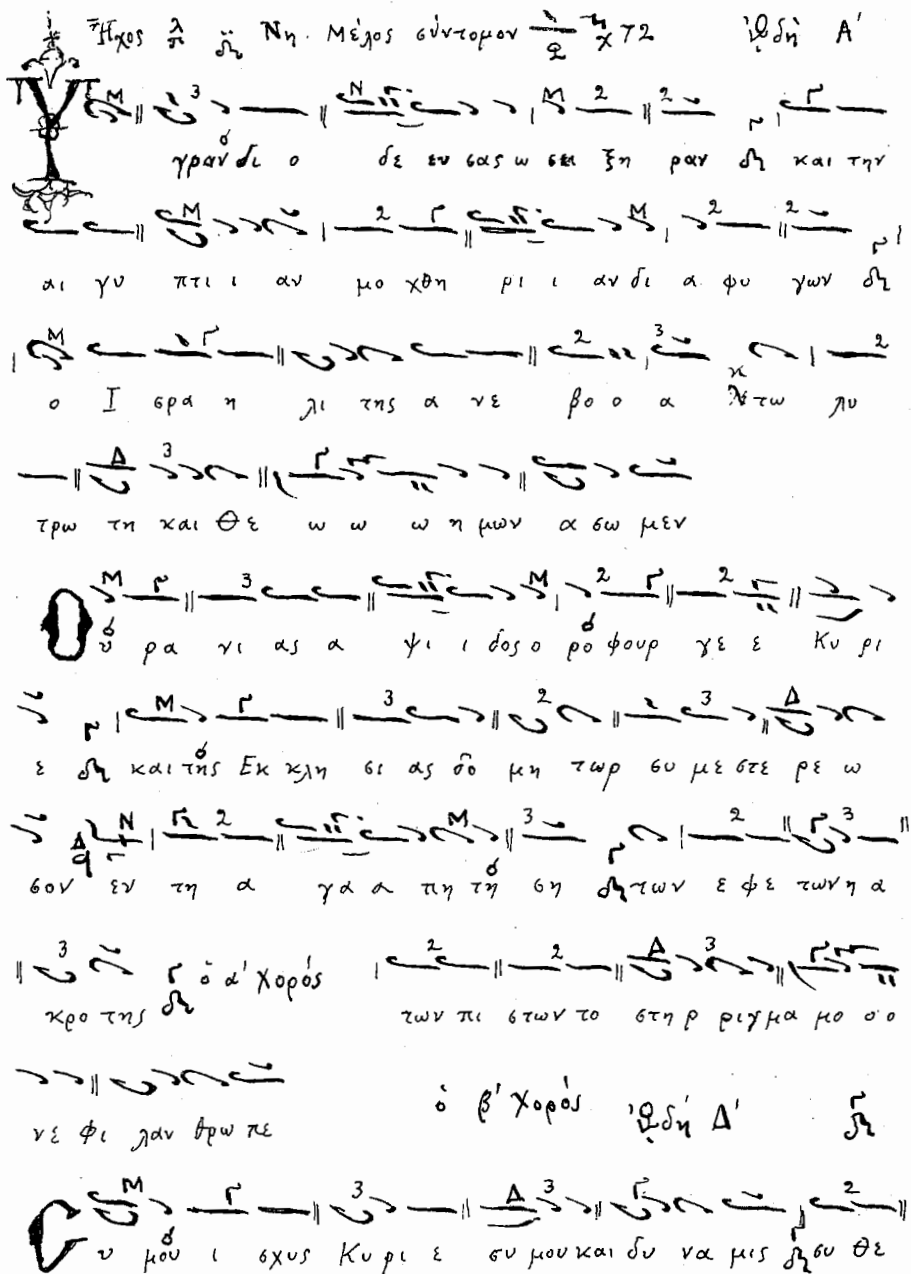 Ἦχος λ π δ Νη Μέλος σύντομον χ 72 ᾨδὴ Α΄
Υ γραν δι ο δε ευ σας ω σει ξη ραν και την
αι γυ πτι ι αν μο χθη ρι ι αν δι α φυ γων
ο Ι σρα η λι της α νε βο ο α τω λυ
τρω τη και Θε ω ω ω η μων α σω μεν
Ο υ ρα νι ας α ψι ι δος ο ρο φουρ γε ε Κυ ρι
ε και της Εκ κλη σι ας δο μη τωρ συ με στε ρε ω
σον εν τη α γα α πη τη ση των ε φε των η α
κρο της ὁ α΄ χορός των πι στων το στη ρ ριγμα μο ο ο
νε φι λαν θρω πε ὁ β΄ χορός ᾨδή Δ΄
Σ υ μου ι σχυς Κυ ρι ε συ μου και δυ να μις συ θε